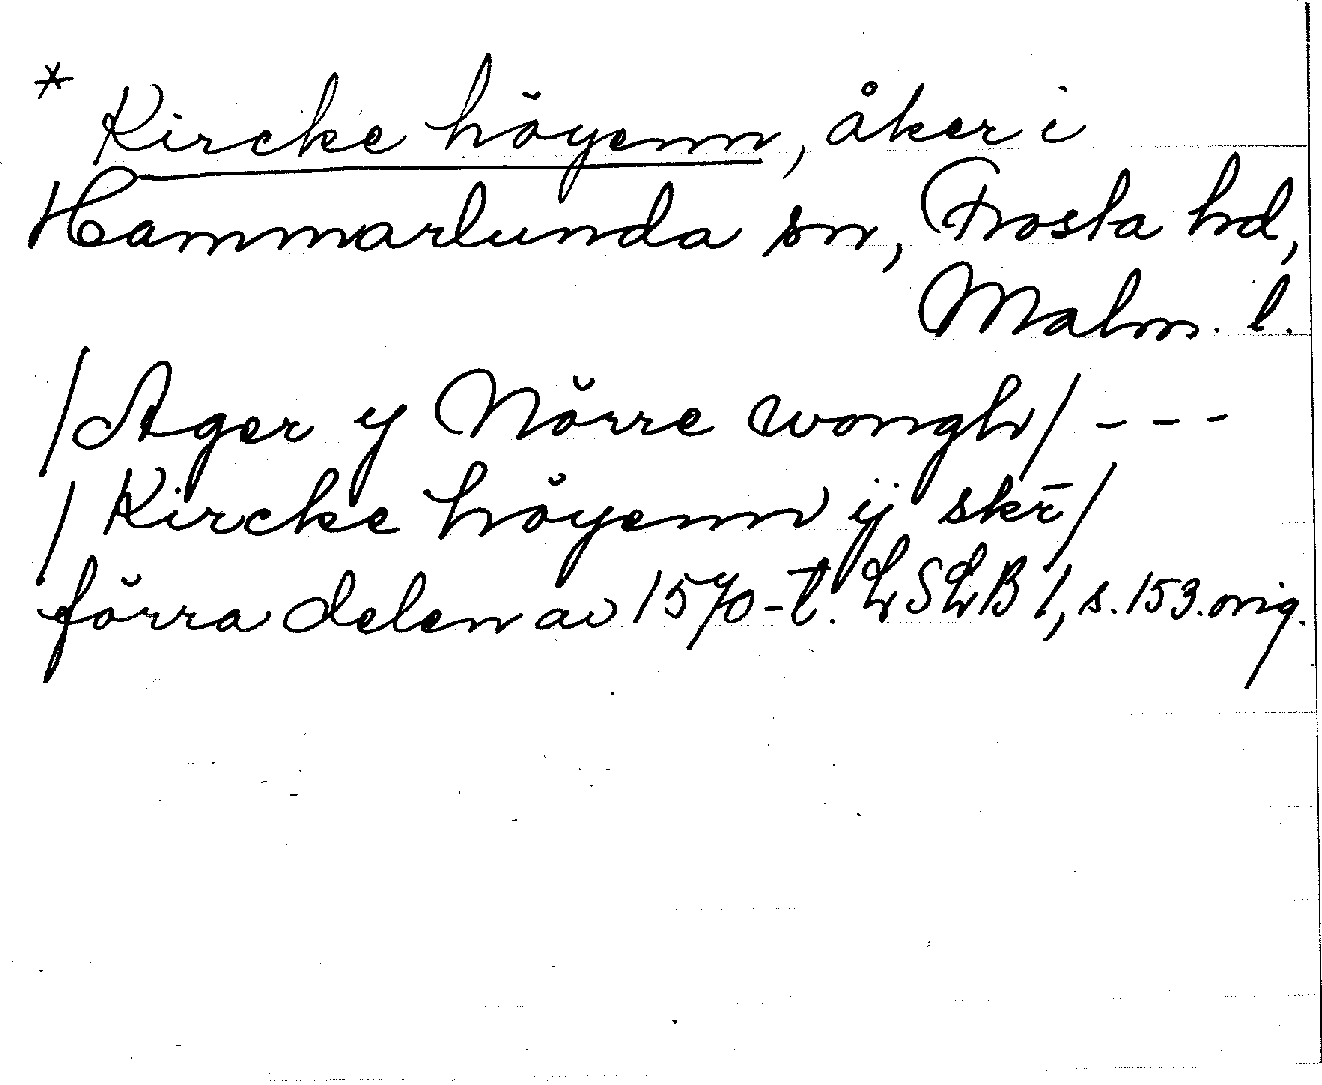 * Kircke höyenn, åker i
Hammarlunda sn, Frosta hd,
Malm. l.
/Ager y Nörre wongh/ - - -
/ Kircke höyenn ÿ skr̄/
förra delen av 1570-t. LSLB 1, s. 153. orig.